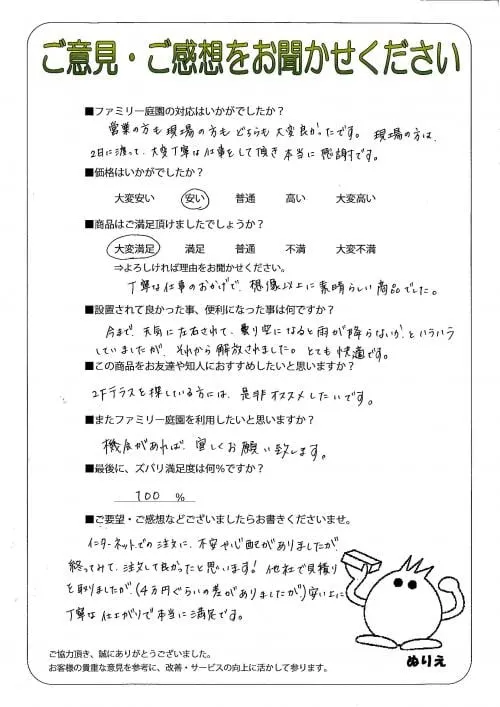 ご意見・ご感想をお聞かせください
■ファミリー庭園の対応はいかがでしたか？
営業の方も現場の方もどちらも大変良かったです。現場の方は、
2日に渡って、大変丁寧な仕事をして頂き本当に感謝です。
■価格はいかがでしたか？
大変安い 安い 普通 高い 大変高い
■商品はご満足頂けましたでしょうか？
大変満足 満足 普通 不満 大変不満
⇒よろしければ理由をお聞かせください。
丁寧な仕事のおかげで、想像以上に素晴らしい商品でした。
■設置されて良かった事、便利になった事は何ですか？
今まで、天気に左右されて、曇り空になると雨が降らないか、とハラハラ
していましたが、それから解放されました。とても快適です。
■この商品をお友達や知人におすすめしたいと思いますか？
2Fテラスを探している方には、是非オススメしたいです。
■またファミリー庭園を利用したいと思いますか？
機会があれば、宜しくお願い致します。
■最後に、ズバリ満足度は何％ですか？
100 %
■ご要望・ご感想などございましたらお書きくださいませ。
インターネットでの注文に、不安や心配がありましたが
終ってみて、注文して良かったと思います！他社で見積り
を取りましたが、(4万円ぐらいの差がありましたが)安い上に
丁寧な仕上がりで本当に満足です。
ぬりえ
ご協力頂き、誠にありがとうございました。
お客様の貴重な意見を参考に、改善・サービスの向上に活かして参ります。